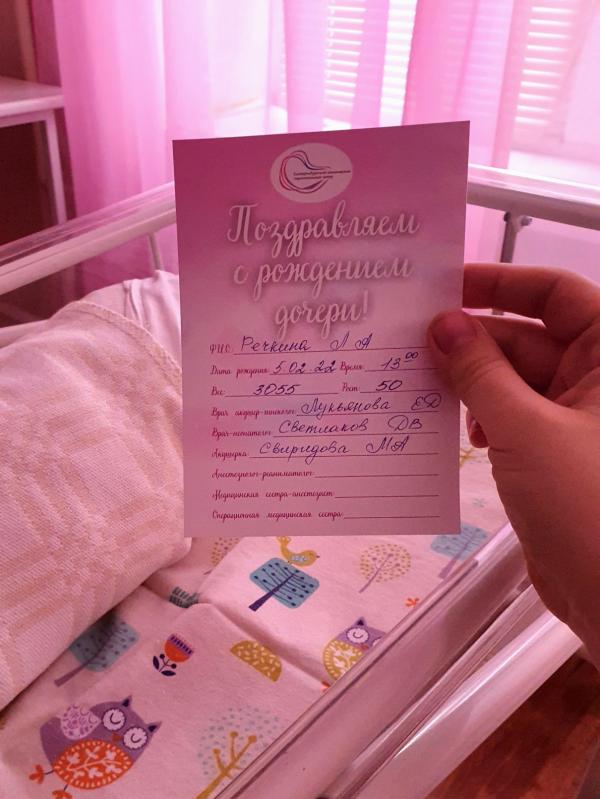 Екатеринбургский клинический
перинатальный центр
Поздравляем
с рождением
дочери!
ФИО: Речкина Л А
Дата рождения: 5.02.22 Время: 13 00
Вес: 3055 Рост: 50
Врач акушер-гинеколог: Лукьянова ЕД
Врач-неонатолог: Светлаков ДВ
Акушерка: Свиридова МА
Анестезиолог-реаниматолог:
Медицинская сестра-анестезист:
Операционная медицинская сестра: